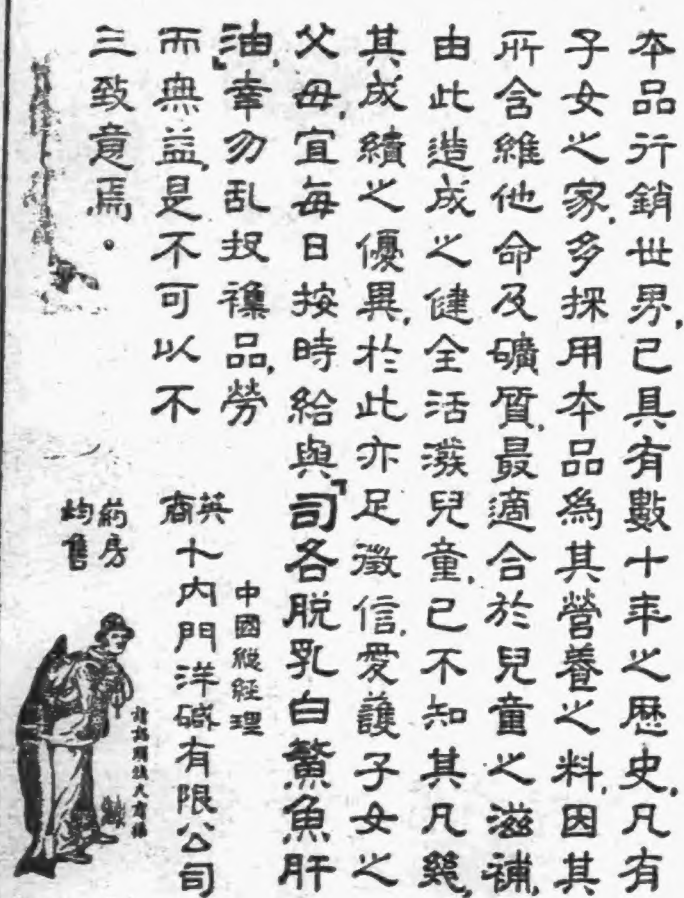 本品行銷世界，已具有數十年之歷史，凡有
子女之家，多採用本品為其營養之料，因其
所含維他命及礦質，最適合於兒童之滋補，
由此造成之健全活潑兒童，已不知其凡幾，
其成績之優異，於此亦足徵信，愛護子女之
父母，宜每日按時給與『司各脱乳白鰵魚肝
油』幸勿乱投襍品，勞
而無益，是不可以不
三致意焉。
中國總經理
英商卜內門洋碱有限公司
葯房
均售